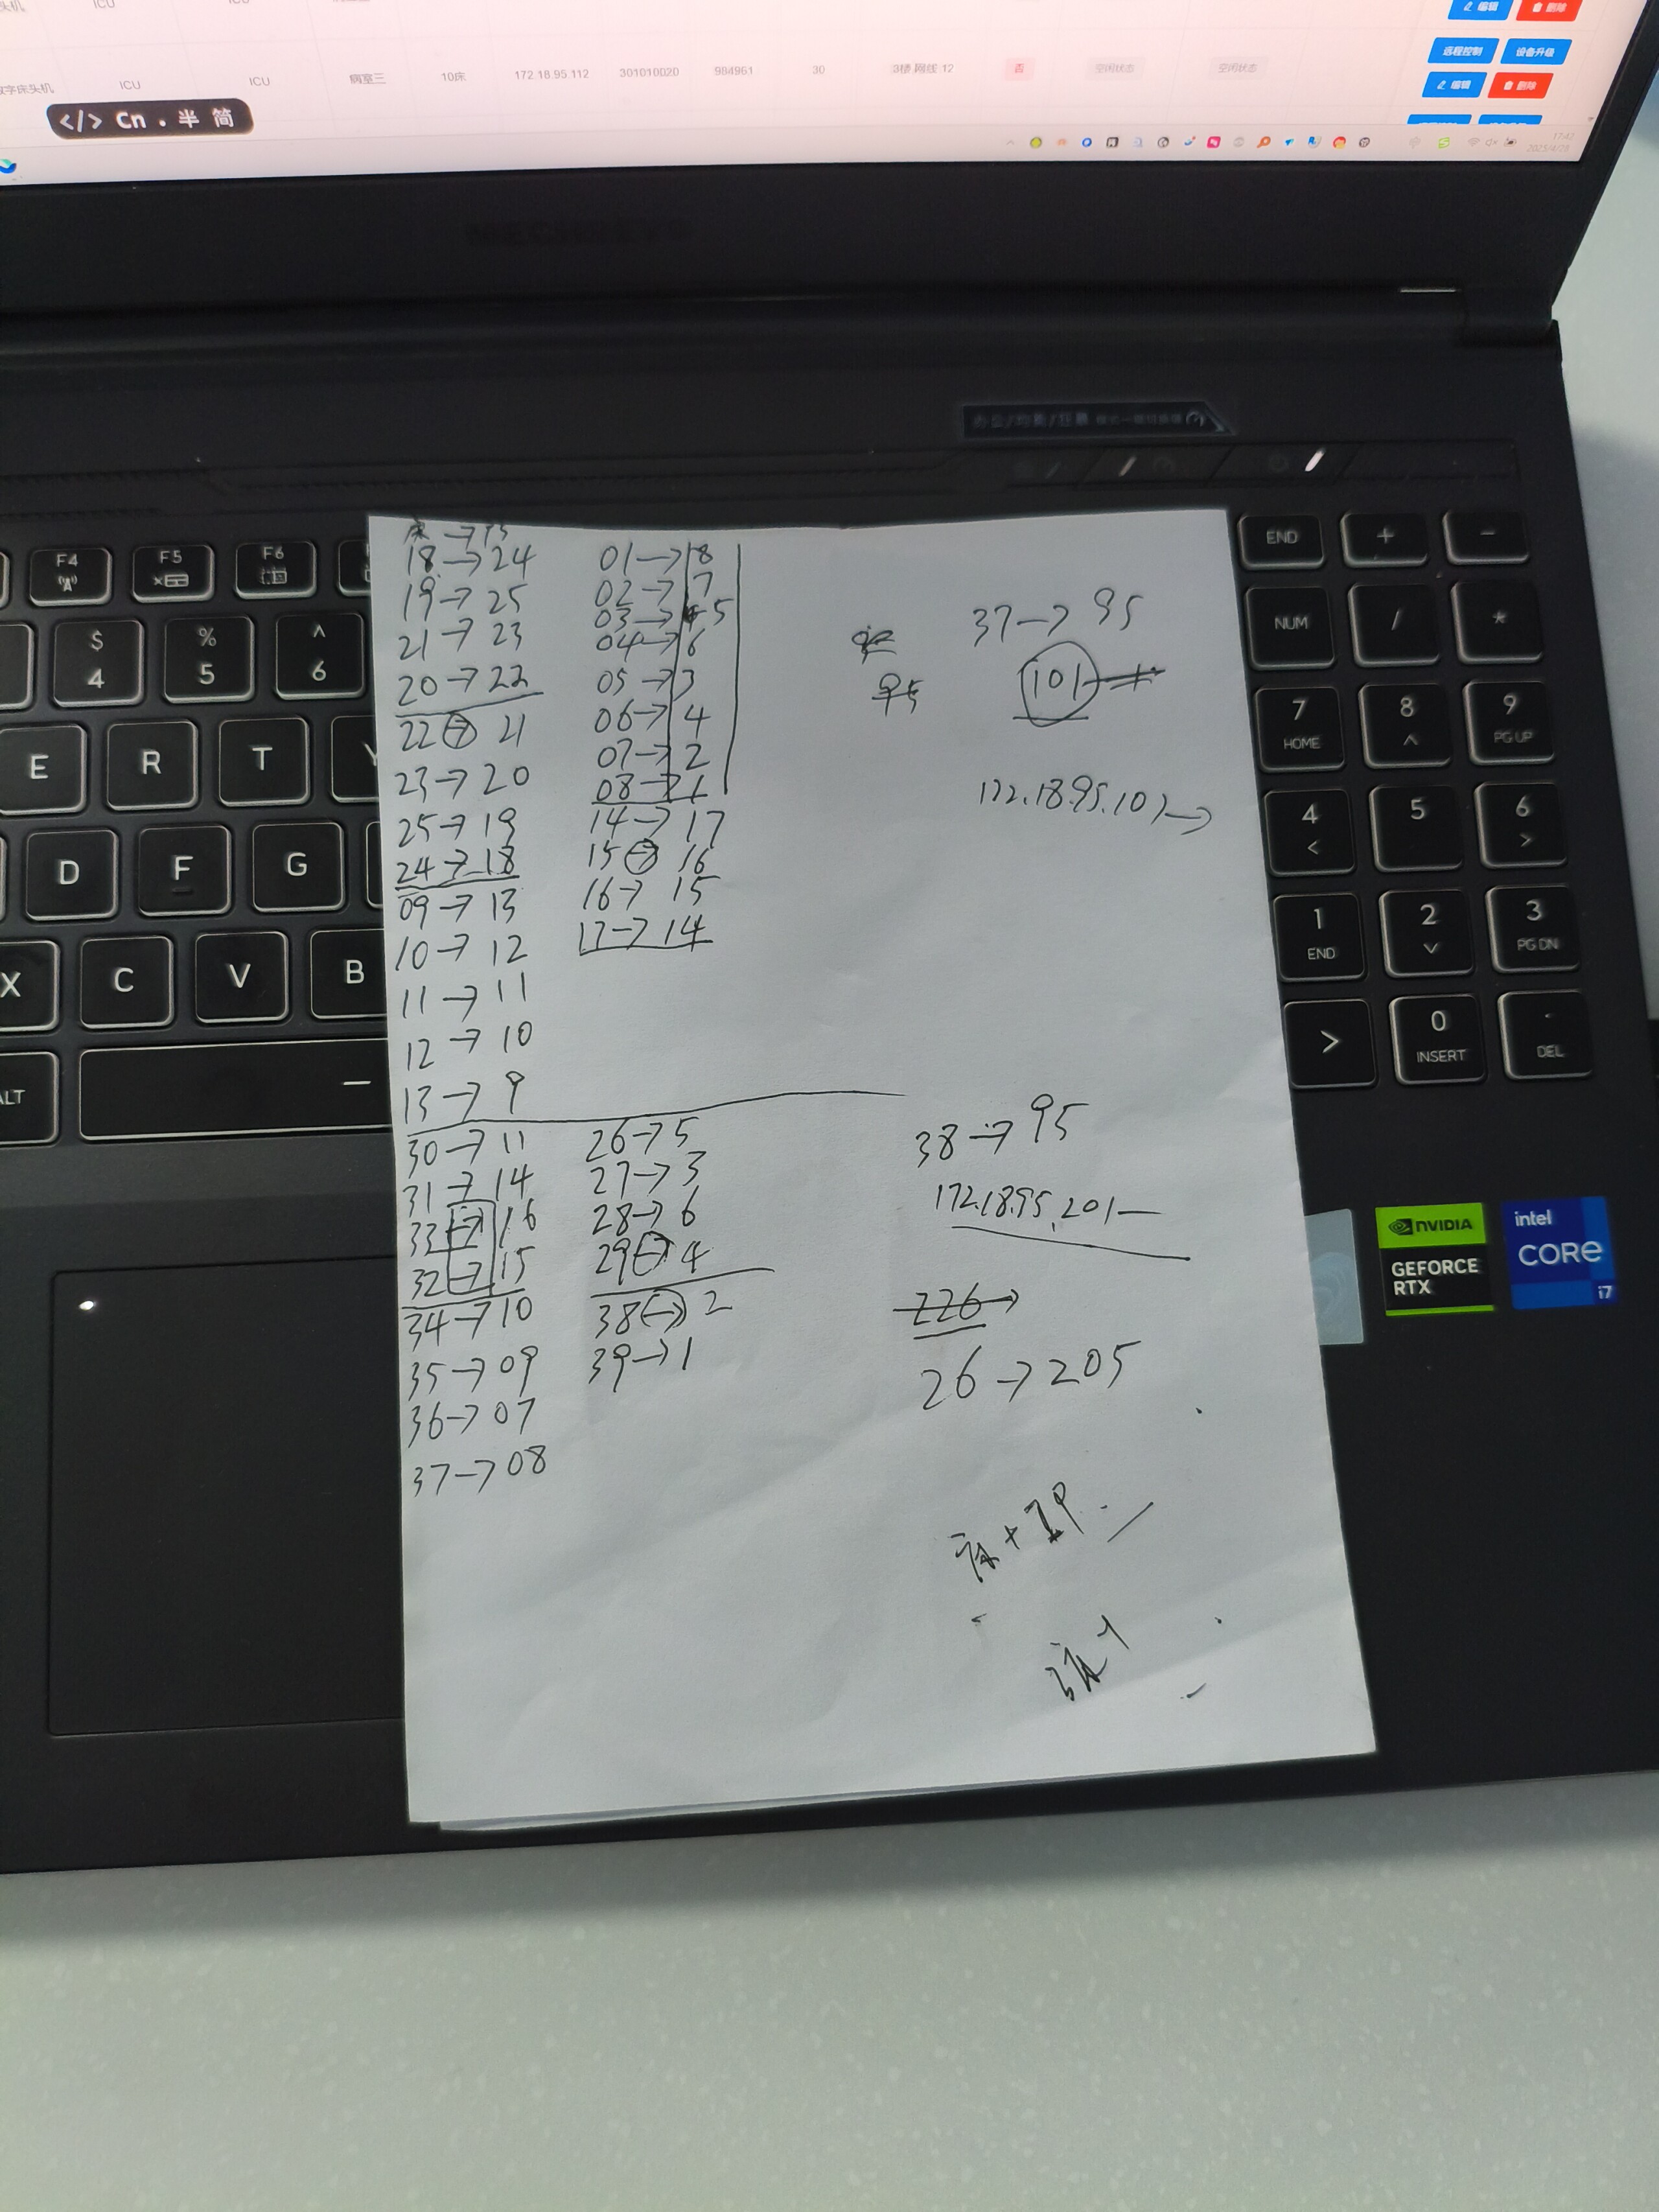 ICU
编辑
删除
远程控制
设备升级
ICU
ICU
病室三
10床
172.18.95.112
301010020
984961
30
3楼 网线 12
否
空闲状态
空闲状态
编辑
删除
</> Cn 半 简
17:42
2025/4/29
18→24
19→25
21→23
20→22
22→21
23→20
25→19
24→18
09→13
10→12
11→11
12→10
13→9
30→11
31→14
33→16
32→15
34→10
35→09
36→07
37→08
01→8
02→7
03→5
04→6
05→3
06→4
07→2
08→1
14→17
15→16
16→15
17→14
26→5
27→3
28→6
29→4
38→2
39→1
37→95
101
172.18.95.101→
38→95
172.18.95.201
226→
26→205
床+IP
F4
F5
F6
END
+
-
$
4
%
5
^
6
NUM
/
*
7
HOME
8
9
PG UP
E
R
T
Y
4
<
5
6
>
D
F
G
1
END
2
3
PG DN
X
C
V
B
>
0
INSERT
.
DEL
ALT
NVIDIA
GEFORCE
RTX
intel
CORE
i7